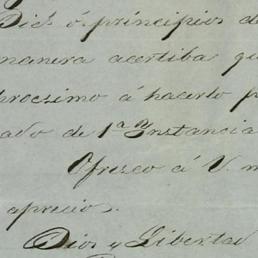 Dies ó principios d
manera acertiba qu
procsimo á hacerlo p
ado de 1ª Instancia
Ofresco á V. m
aprecio.
Dios y Libertad